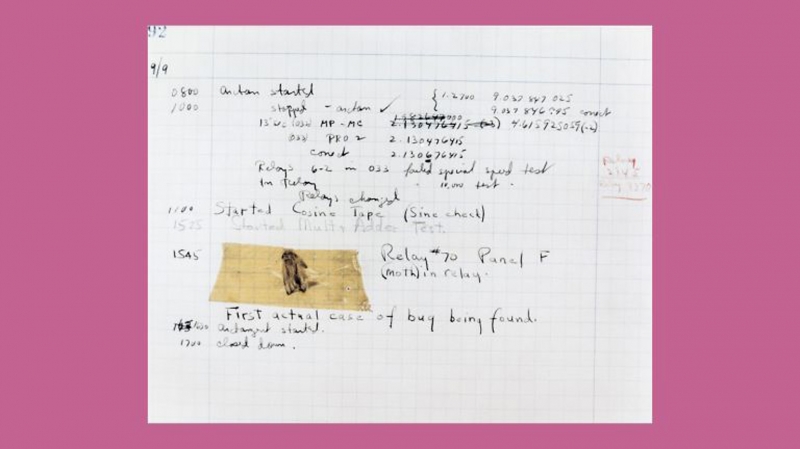 92
9/9
0800 Antan started
1000 stopped - antan ✓ { 1.2700 9.037 847 025
9.037 846 795 correct
13"uc (032) MP - MC 2.130476415 4.615925059(-2)
(033) PRO 2 2.130476415
correct 2.130676415
Relays 6-2 in 033 failed special speed test
In Relay 10,000 test.
Relay
2145
Relay 3370
Relays changed
1100 Started Cosine Tape (Sine check)
1525 Started Mult+Adder Test.
1545 Relay #70 Panel F
(moth) in relay.
First actual case of bug being found.
1630 antangent started.
1700 closed down.